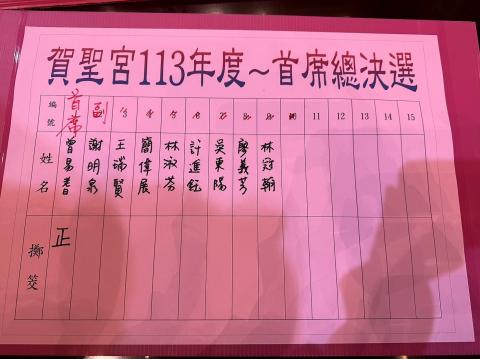 賀聖宮113年度～首席總決選
編號 首席 副 11 12 13 14 15
姓名 曾易書 謝明泉 王瑞賢 簡偉展 林淑芬 計進鈺 吳東陽 廖義芳 林冠翰
擲筊 正